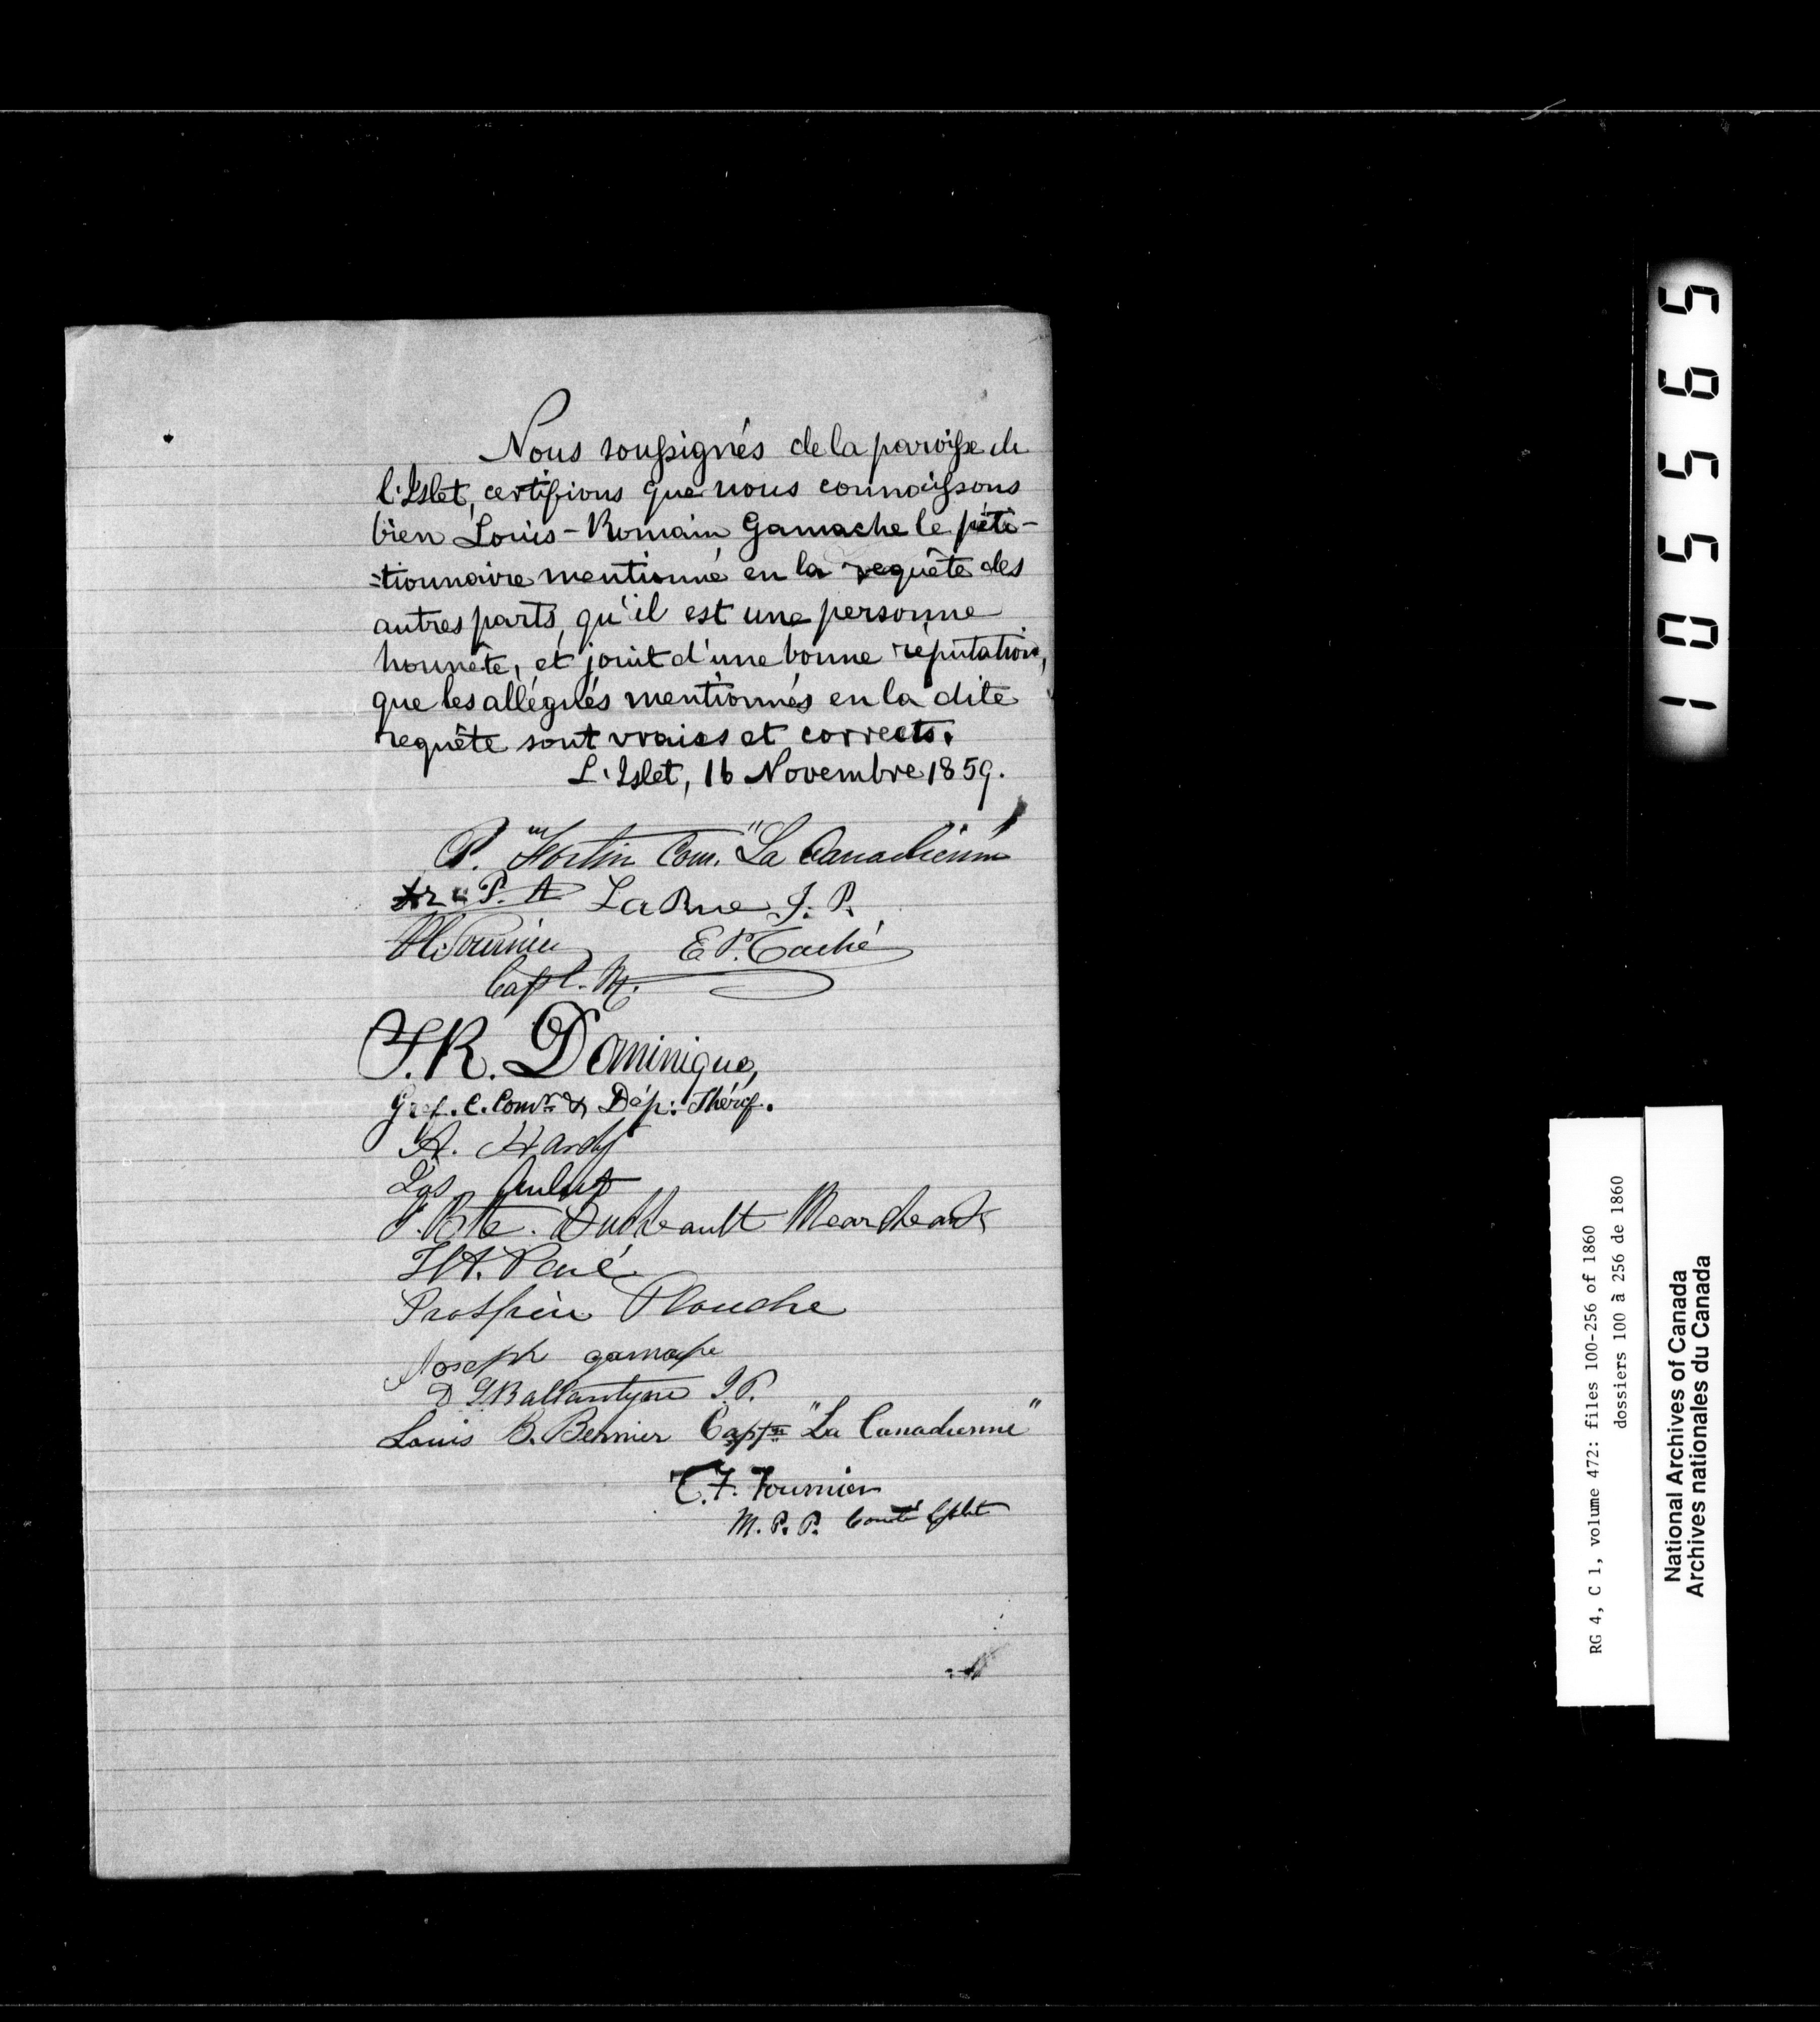 Nous soussignés de la paroisse de
l'Islet, certifions que nous connaissons
bien Louis-Romain Gamache le péti-
=tionnaire mentionné en la requête des
autres parts, qu'il est une personne
honnête, et jouit d'une bonne réputation,
que les allégués mentionnés en la dite
requête sont vraies et corrects.
L'Islet, 16 Novembre 1859.
P. Fortin Com. "La Canadienne"
P. A LaRue J. P.
Fournier E P. Taché
Capt. M.
J.R. Dominique,
Gref. C. Comrs & Dép: Shérif.
A. Hardy
J. Bte. Dutreault Marchand
Paré
Prospère Plouche
Joseph gamache
D Ballantyne J.P.
Louis B. Bernier Captn "La Canadienne"
C.F. Fournier
M.P.P. Comté Islet
105565
RG 4, C 1, volume 472: files 100-256 of 1860
dossiers 100 à 256 de 1860
National Archives of Canada
Archives nationales du Canada